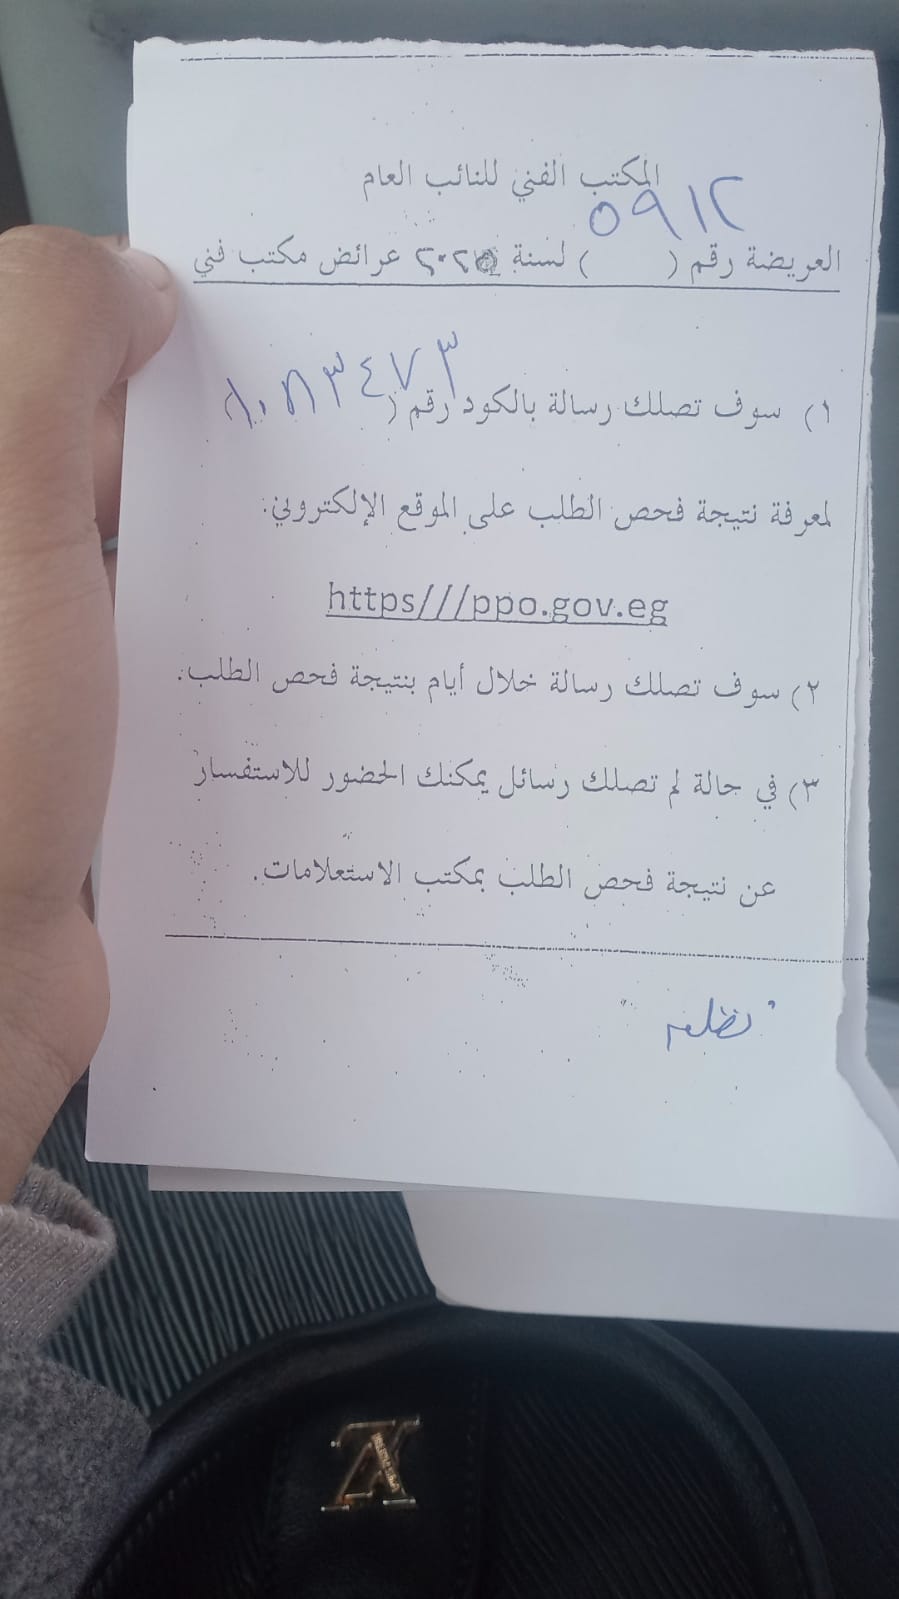 المكتب الفني للنائب العام
٥٩١٢
العريضة رقم (        ) لسنة ٢٠٢٥ عرائض مكتب فني
١) سوف تصلك رسالة بالكود رقم (                )
لمعرفة نتيجة فحص الطلب على الموقع الإلكتروني:
https///ppo.gov.eg
٢) سوف تصلك رسالة خلال أيام بنتيجة فحص الطلب.
٣) في حالة لم تصلك رسائل يمكنك الحضور للاستفسار
عن نتيجة فحص الطلب بمكتب الاستعلامات.
تظلم